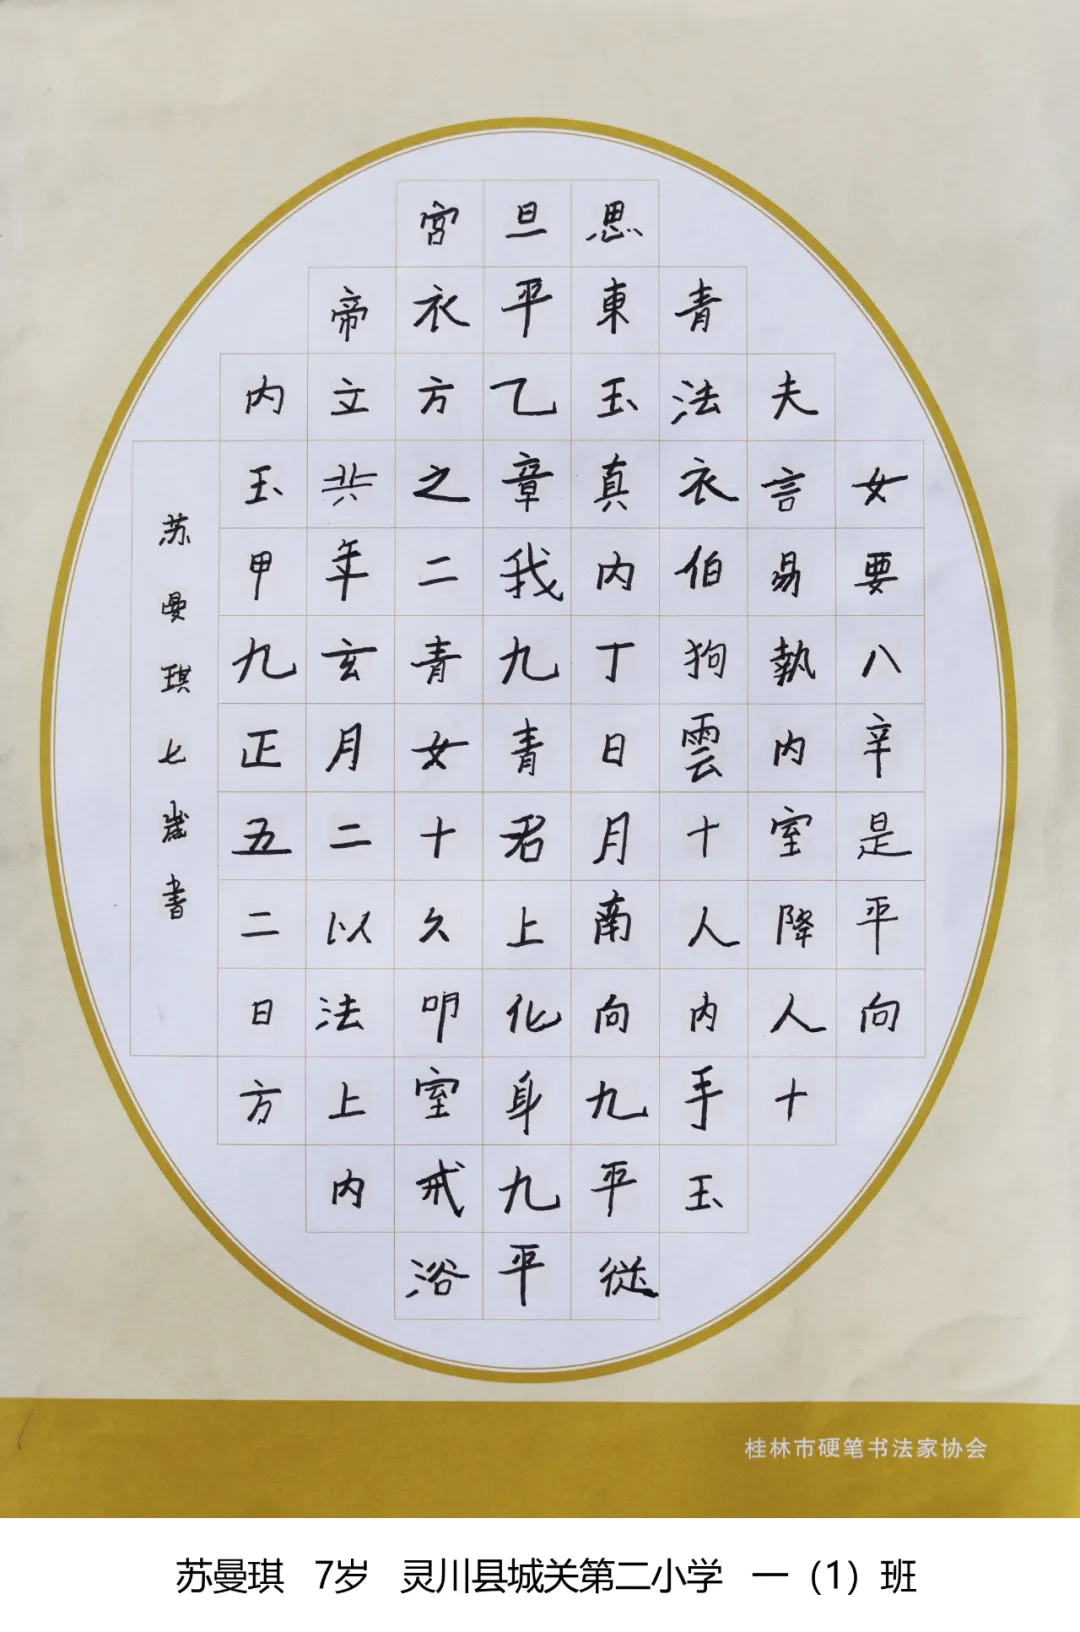 女要八辛是平向
夫言易執内室降人十
青法衣伯狗雲十人内手玉
思東玉真内丁日月南向九平從
旦平乙章我九青君上化身九平
宮衣方之二青女十久叩室戒浴
帝立共年玄月二以法上内
内玉甲九正五二日方
苏曼琪七歲書
桂林市硬笔书法家协会
苏曼琪 7岁 灵川县城关第二小学 一（1）班